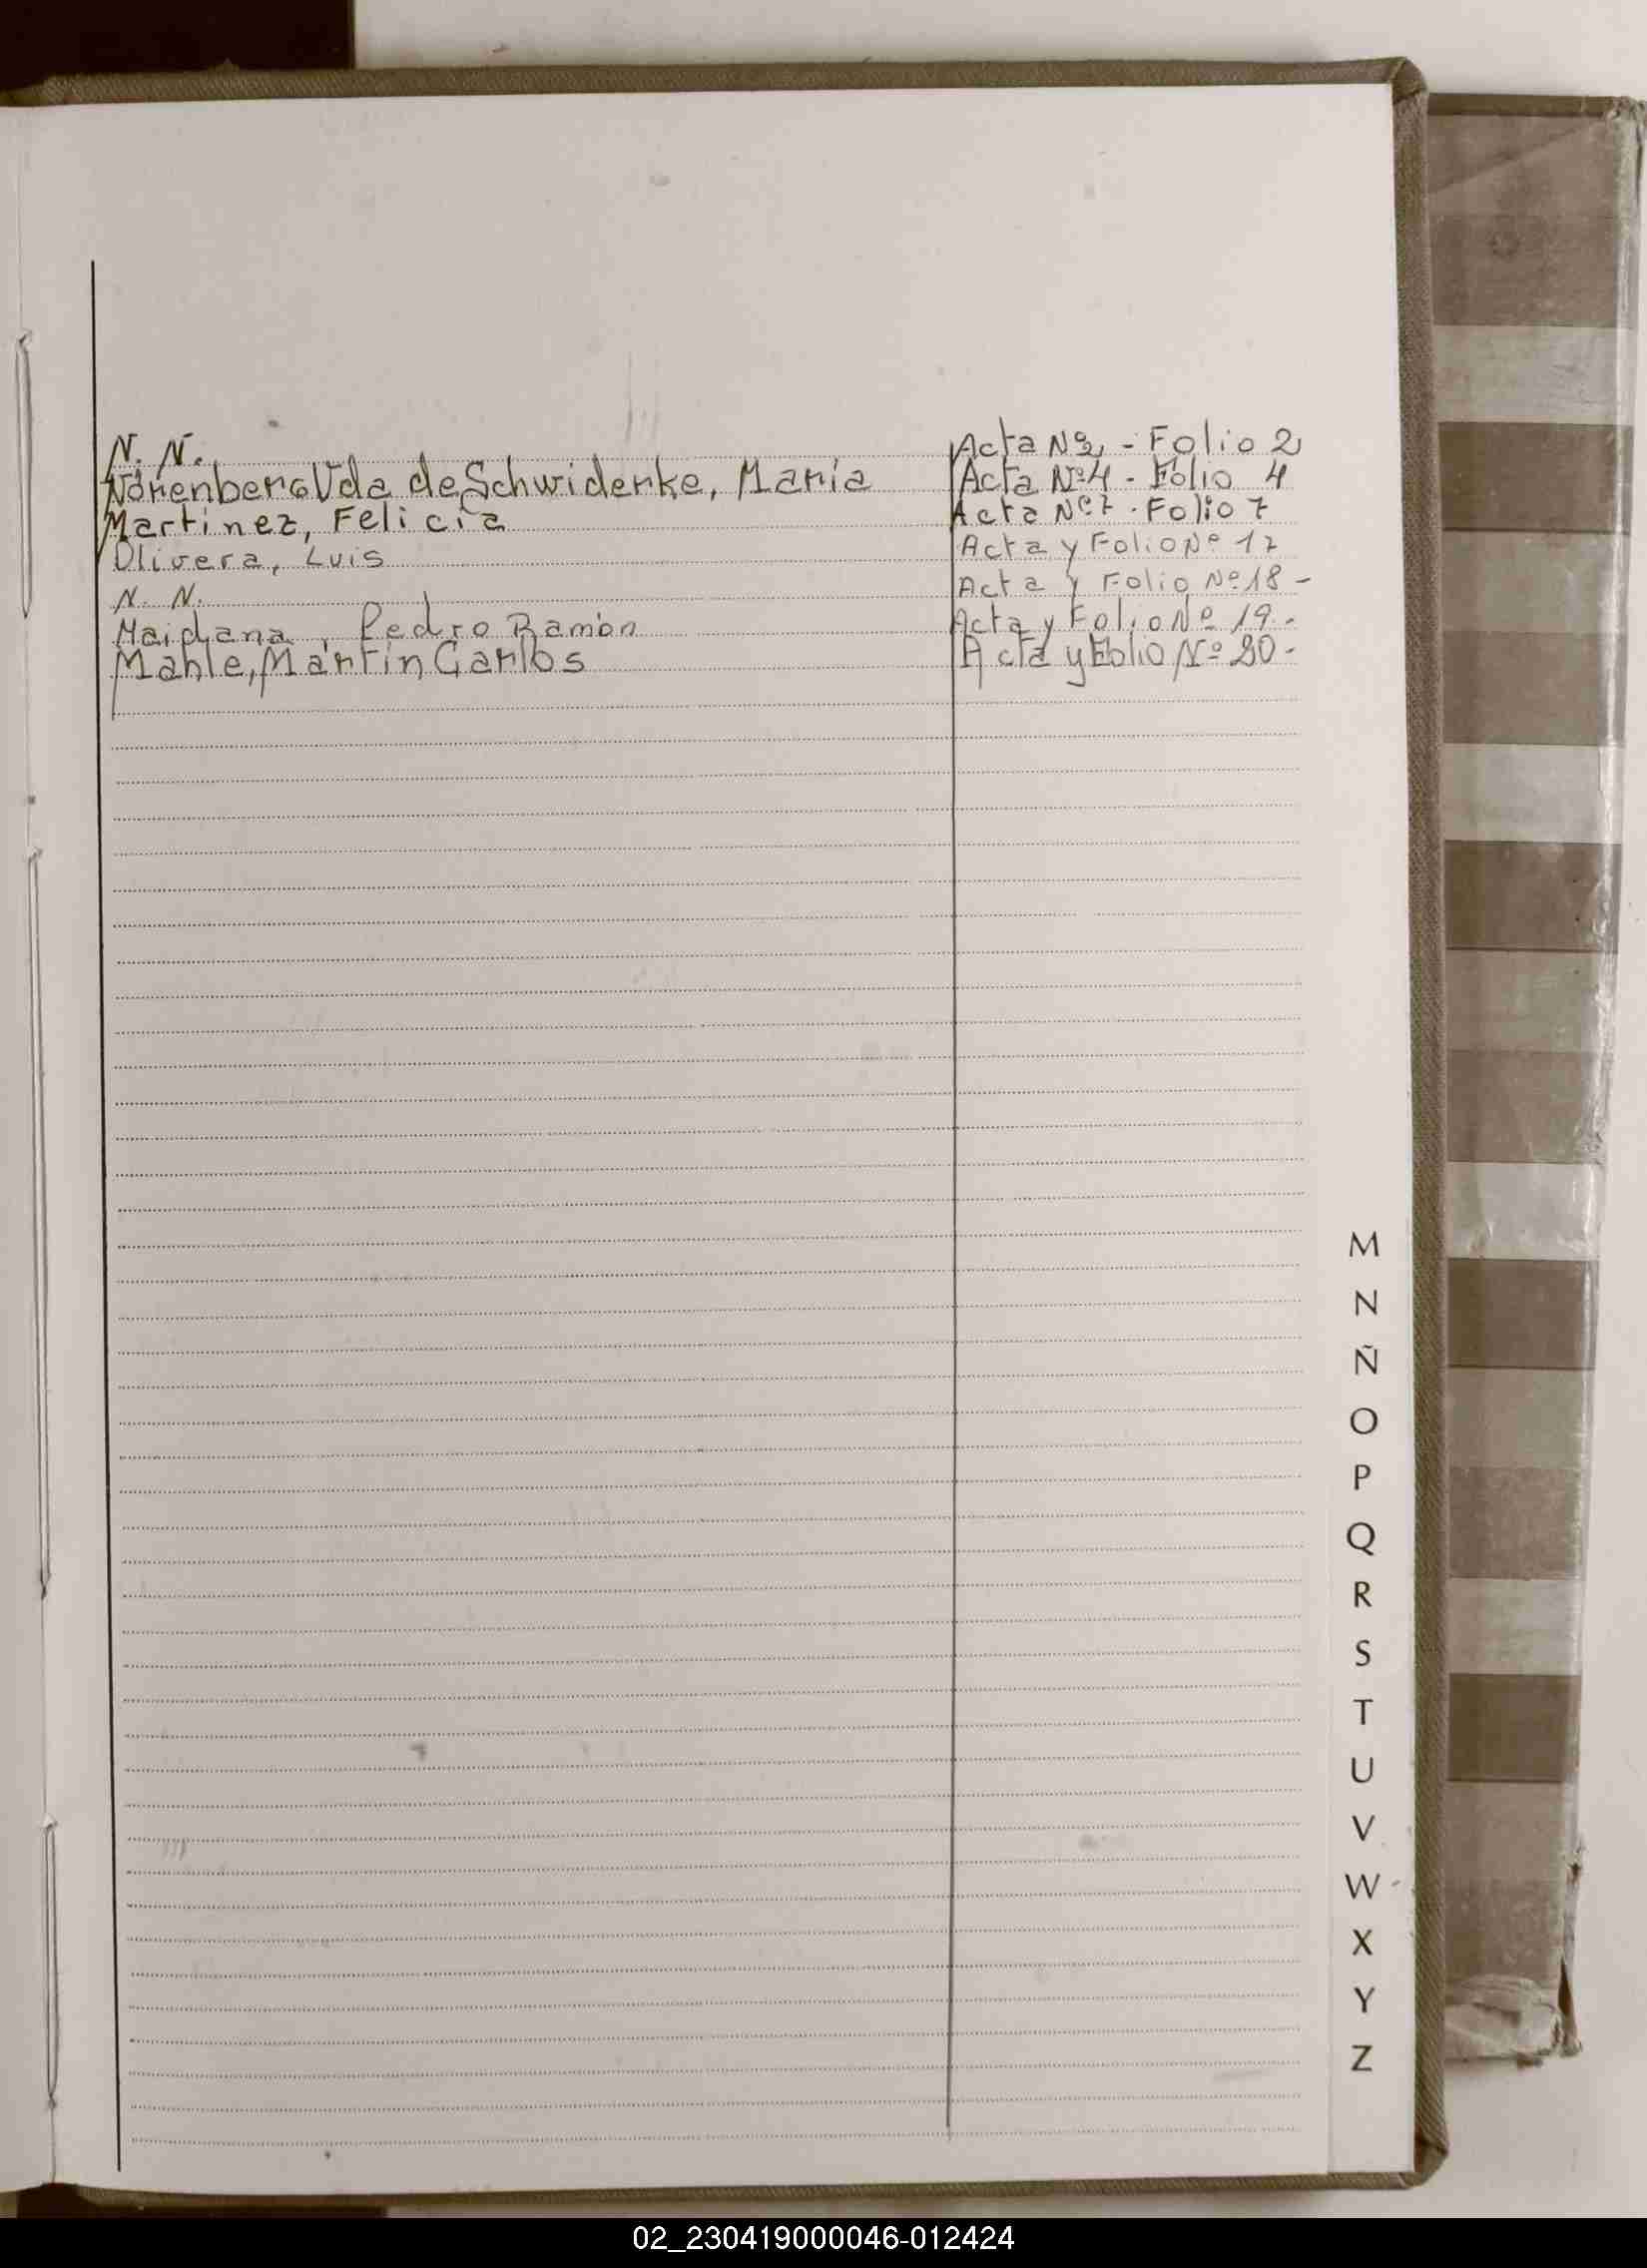 N. N. Acta Nº2 - Folio 2
Nörenberg Vda de Schwiderke, María Acta Nº4 - Folio 4
Martinez, Felicia Acta Nº7 - Folio 7
Olivera, Luis Acta y Folio Nº 17
N. N. Acta y Folio Nº 18 -
Maidana, Pedro Ramón Acta y Folio Nº 19.-
Mahle, Martín Carlos Acta y Folio Nº 20-
M
N
Ñ
O
P
Q
R
S
T
U
V
W
X
Y
Z
02_230419000046-012424